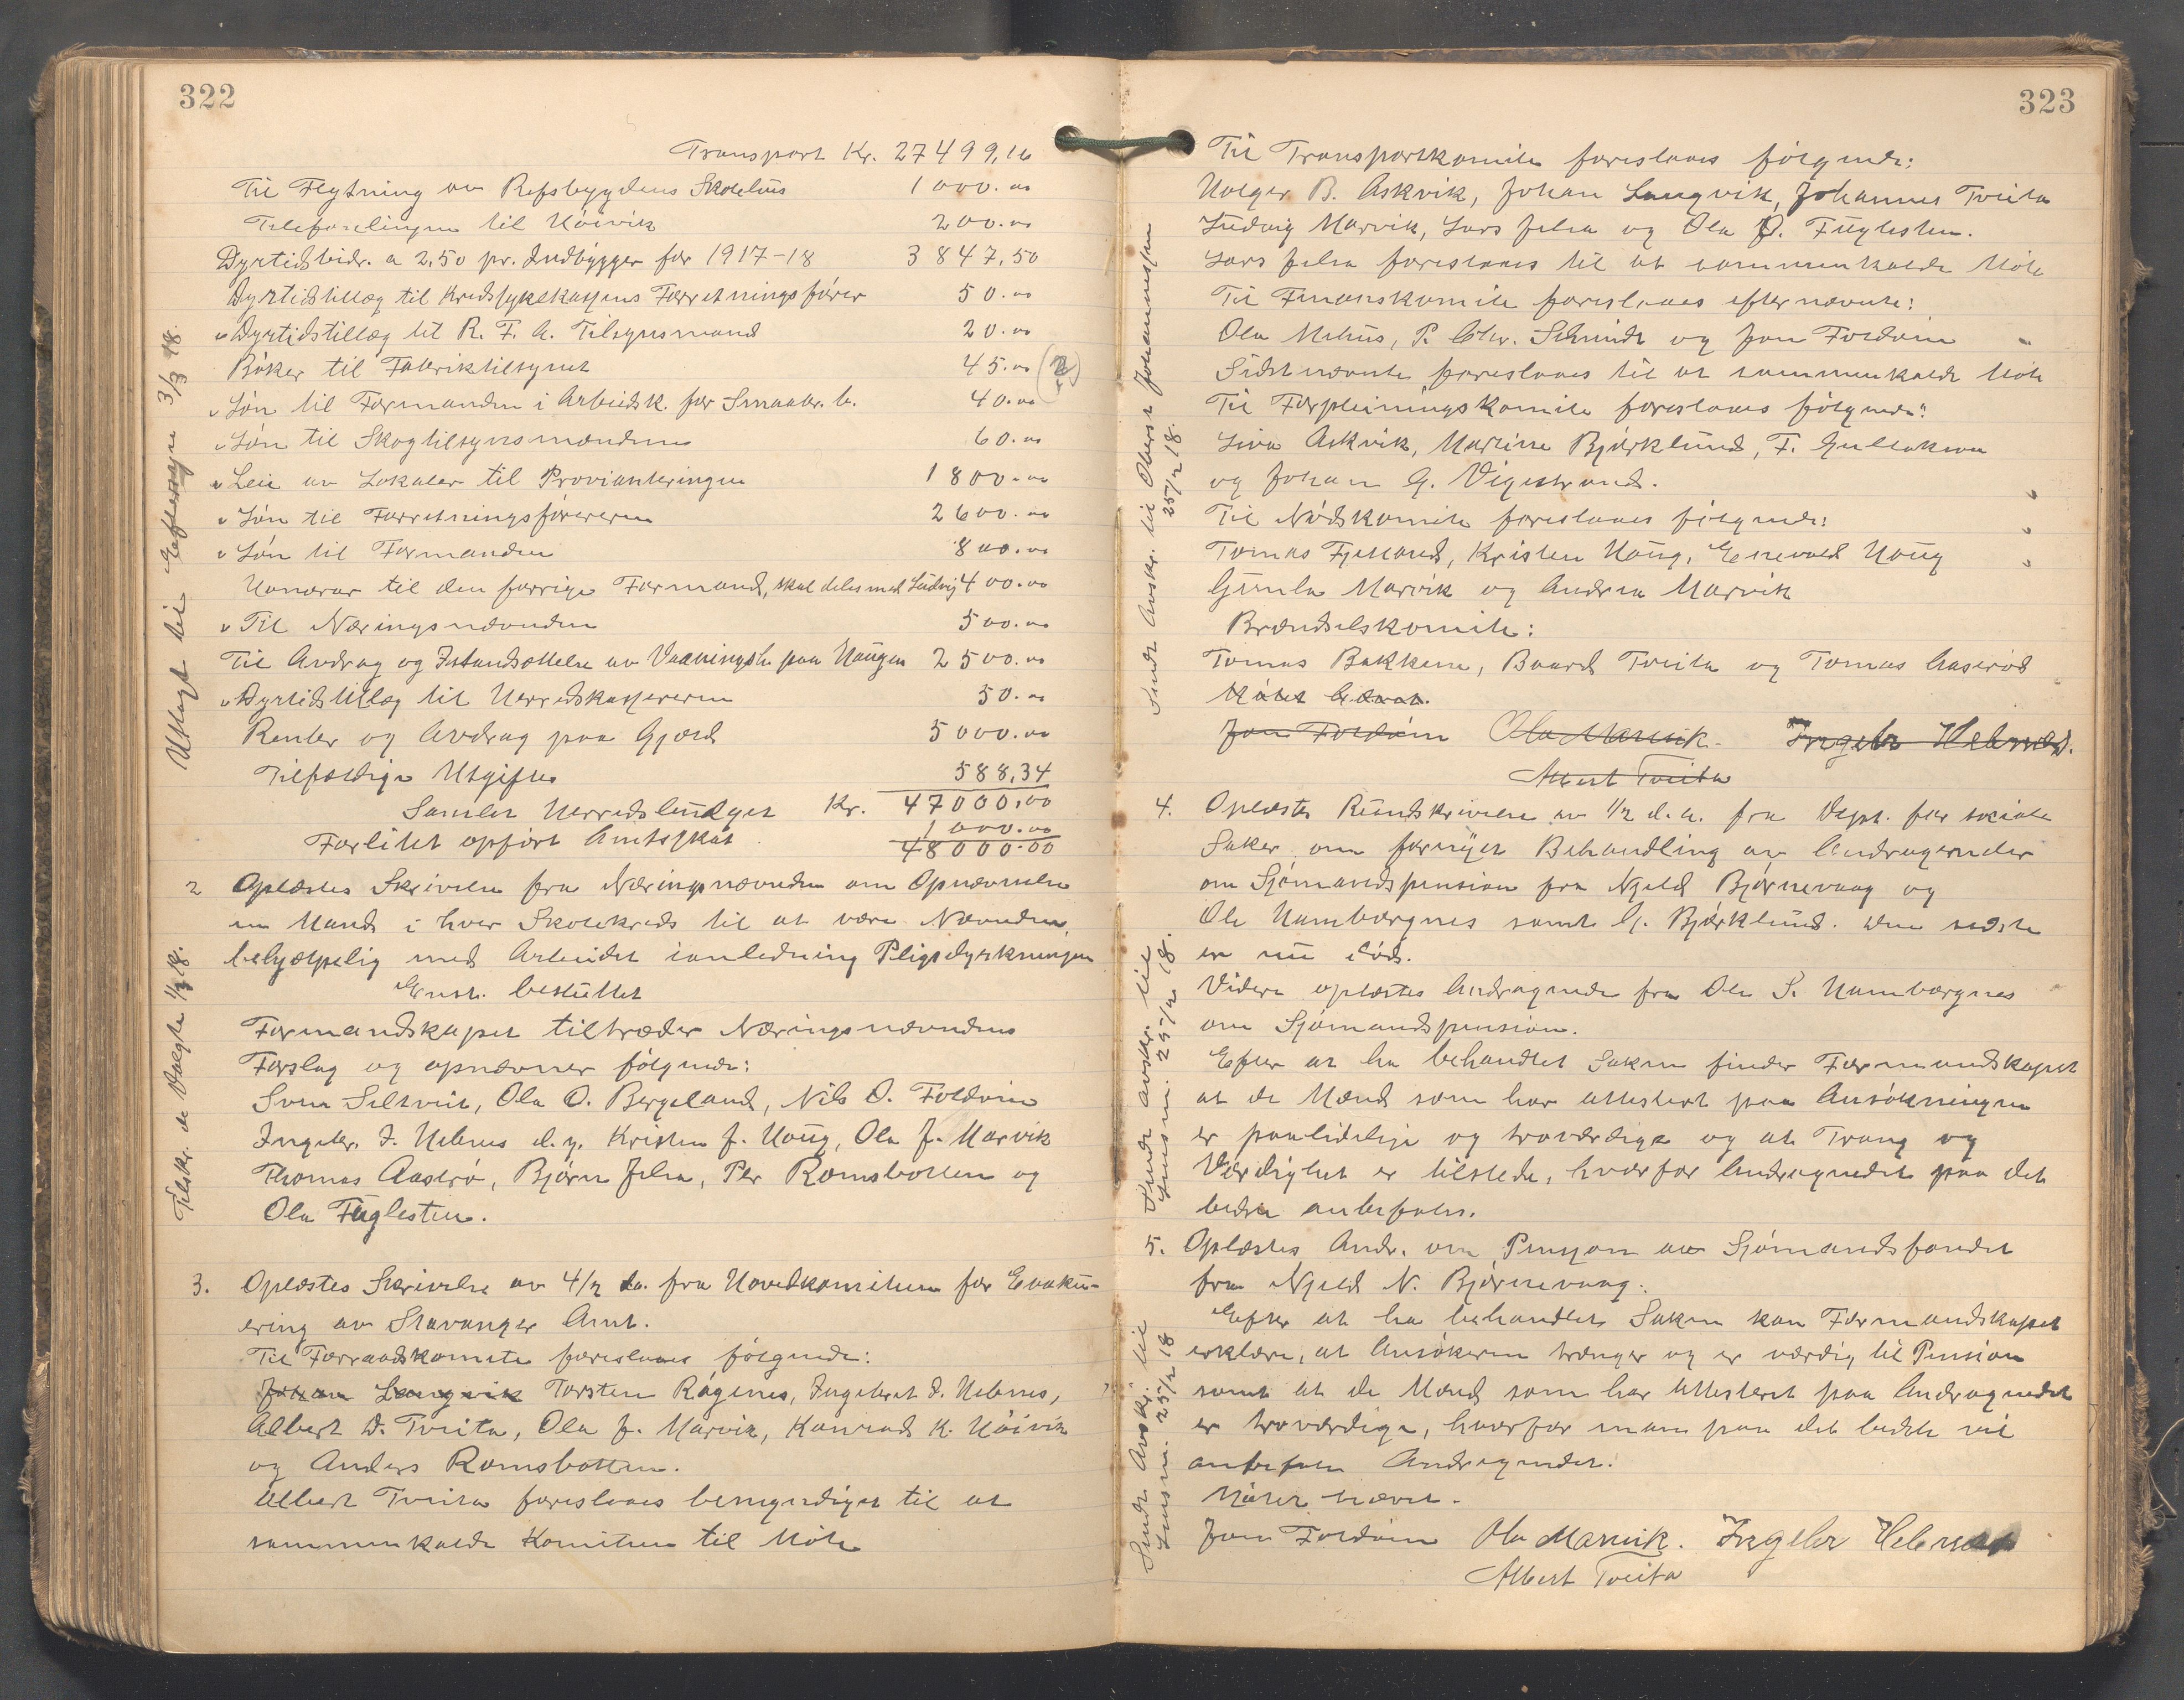 322
Transport Kr. 27499,16
Til Flytning av Refsbygdens Skolehus 1000.00
Telefonlingen til Höivik 200.00
Dyrtidsbidr. a 2,50 pr. Indbygger for 1917-18 3847,50
Dyrtidstillæg til Kredssykekassens Forretningsfører 50.00
Dyrtidstillæg til R. F. A. Tilsynsmand 20.00
Bøker til Fabriktilsynet 45.00 (2)
Løn til Formanden i Arbeidsk. for Smaabr. b. 40.00
Løn til Skogtilsynsmændene 60.00
Leie av Lokaler til Provianteringen 1800.00
Løn til Forretningsføreren 2600.00
Løn til Formanden 800.00
Honorar til den forrige Formand, skal deles med Ludvig 400.00
Til Næringsnævnden 500.00
Til Avdrag og Istandsættelse av Vaaningsh. paa Haugen 2500.00
Dyrtidstillæg til Herredskassereren 50.00
Renter og Avdrag paa Gjæld 5000.00
Tilfældige Utgifter 588,34
Samlet Herredsbudget Kr. 47000,00
Forlitet opført Amtsskat 1000.00
48000.00
Utlagt til Eftersyn 3/3 18.
2 Oplæstes Skrivelse fra Næringsnævnden om Opnævnelse
en Mand i hver Skolekreds til at være Nævnden
behjælpelig med Arbeidet i anledning Pligtdyrkningen
Enst. besluttet
Formandskapet tiltræder Næringsnævndens
Forslag og opnævner følgende:
Sven Seltveit, Ola O. Bergeland, Nils O. Foldøin
Ingebr. I. Helenes d. y. Kristen J. Houg, Ola J. Marvik
Thomas Aasterø, Bjørn Jelsa, Per Romsbotten og
Ola Fuglesteen.
Tilskr. de Valgte 1/3 18.
3. Oplæstes Skrivelse av 4/2 d.a. fra Hovedkomiteen for Evaku-
ering av Stavanger Amt.
Til Forraadskomite foreslaaes følgende:
Johan Langvik Torsten Rögenes, Ingebret I. Helenes,
Albert D. Tveita, Ola J. Marvik, Konrad K. Höivik
og Anders Romsbotten.
Albert Tveita foreslaaes bemyndiget til at
sammenkalde Komiteen til Möte
323
Til Transportkomite foreslaaes følgende:
Holger B. Askvik, Johan Langvik, Johannes Tveita
Ludvig Marvik, Lars Jelsa og Ola O. Fuglesteen.
Lars Jelsa foreslaaes til at sammenkalde Möte
Til Finanskomite foreslaaes efternævnte:
Ola Mehus, P. Chr. Schmidt og Jon Foldøin
Sidstnævnte foreslaaes til at sammenkalde Möte
Til Forpleiningskomite foreslaaes følgende:
Liva Askvik, Marine Bjørklund, F. Gullaksen
og Johan G. Vigestrand.
Til Nödskomite foreslaaes følgende:
Tomas Fjelland, Kristen Houg, Enevald Houg
Gunla Marvik og Andrea Marvik
Brændselskomite:
Tomas Bakken, Baard Tveita og Tomas Aasterød
Møtet hævet.
Jon Foldøin Ola Marvik. Ingebr Helenes.
Albert Tveita
Sendt Avskr. til Oberst Johannessen
25/2 18.
4. Oplæstes Rundskrivelse av 1/2 d.a. fra Dept. for sociale
Saker om fornyet Behandling av Andragender
om Sjømandspension fra Njeld Bjørnevaag og
Ole Hambørgnes samt G. Bjørklund. Den sidste
er nu død.
Videre oplæstes Andragende fra Ole S. Hambørgnes
om Sjømandspension.
Efter at ha behandlet Saken finder Formandskapet
at de Mænd som har attestert paa Ansøkningen
er paalidelige og troværdige og at Trang og
Værdighet er tilstede, hvorfor Andragendet paa det
bedste anbefales.
Sendt avskr. til
Lensm. 25/2 18.
5. Oplæstes Andr. om Pension av Sjømandsfondet
fra Njeld N. Bjørnevaag.
Efter at ha behandlet Saken kan Formandskapet
erklære, at Ansøkeren trænger og er værdig til Pension
samt at de Mænd som har attesteret paa Andragendet
er troværdige, hvorfor man paa det bedste vil
anbefale Andragendet.
Møtet hævet.
Jon Foldøin Ola Marvik. Ingebr Helenes
Albert Tveita
Sendt Avskr. til
Lensm. 25/2 18